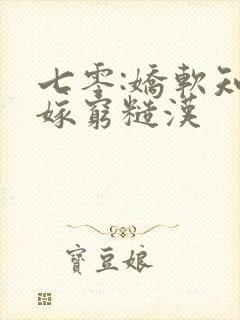 七零:嬌軟知
嫁窮糙漢
寶豆娘